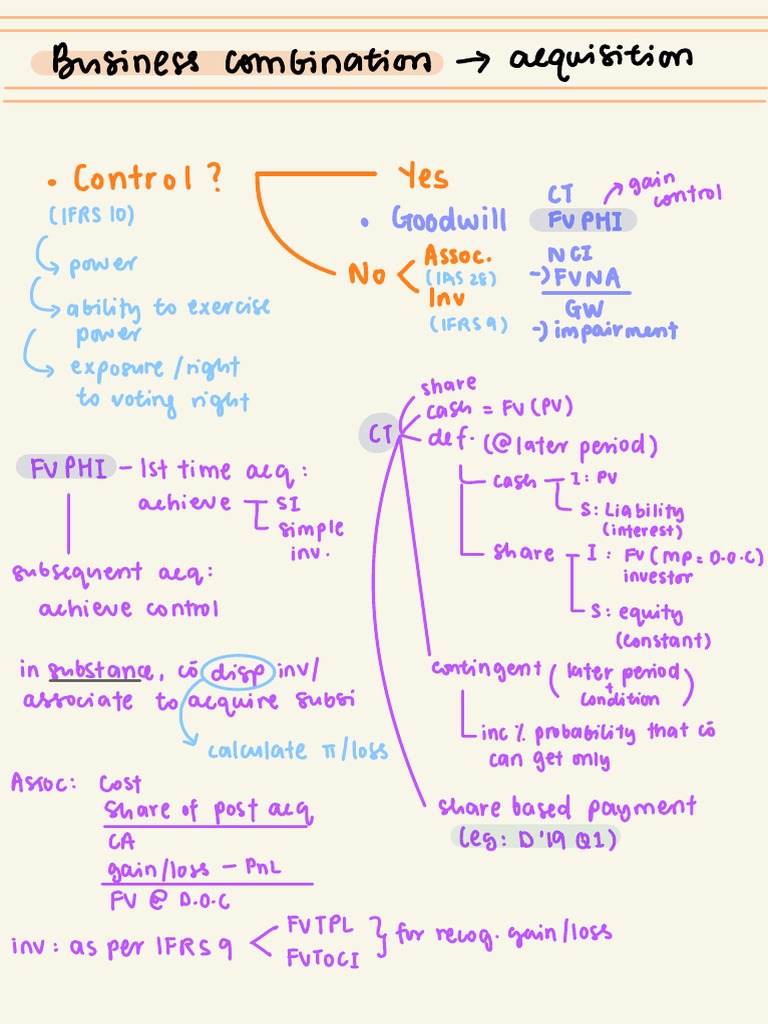 Business combination → acquisition
• Control?
(IFRS 10)
power
ability to exercise
power
exposure/right
to voting right
Yes
• Goodwill
No
Assoc.
(IAS 28)
Inv
(IFRS 9)
CT
FVPHI
gain
control
NCI
-) FVNA
GW
-) impairment
FVPHI – 1st time acq:
achieve
SI
simple
inv.
subsequent acq:
achieve control
in substance, cō disp inv/
associate to acquire subsi
calculate π/loss
Assoc: Cost
Share of post acq
CA
gain/loss – PnL
FV @ D.O.C
inv: as per IFRS 9
FVTPL
FVTOCI
for recog. gain/loss
CT
share
cash = FV(PV)
def. (@later period)
cash
I: PV
S: Liability
(interest)
share
I: FV(mp = D.O.C)
investor
S: equity
(constant)
contingent (later period
+
condition)
inc % probability that cō
can get only
share based payment
(eg: D'19 Q1)